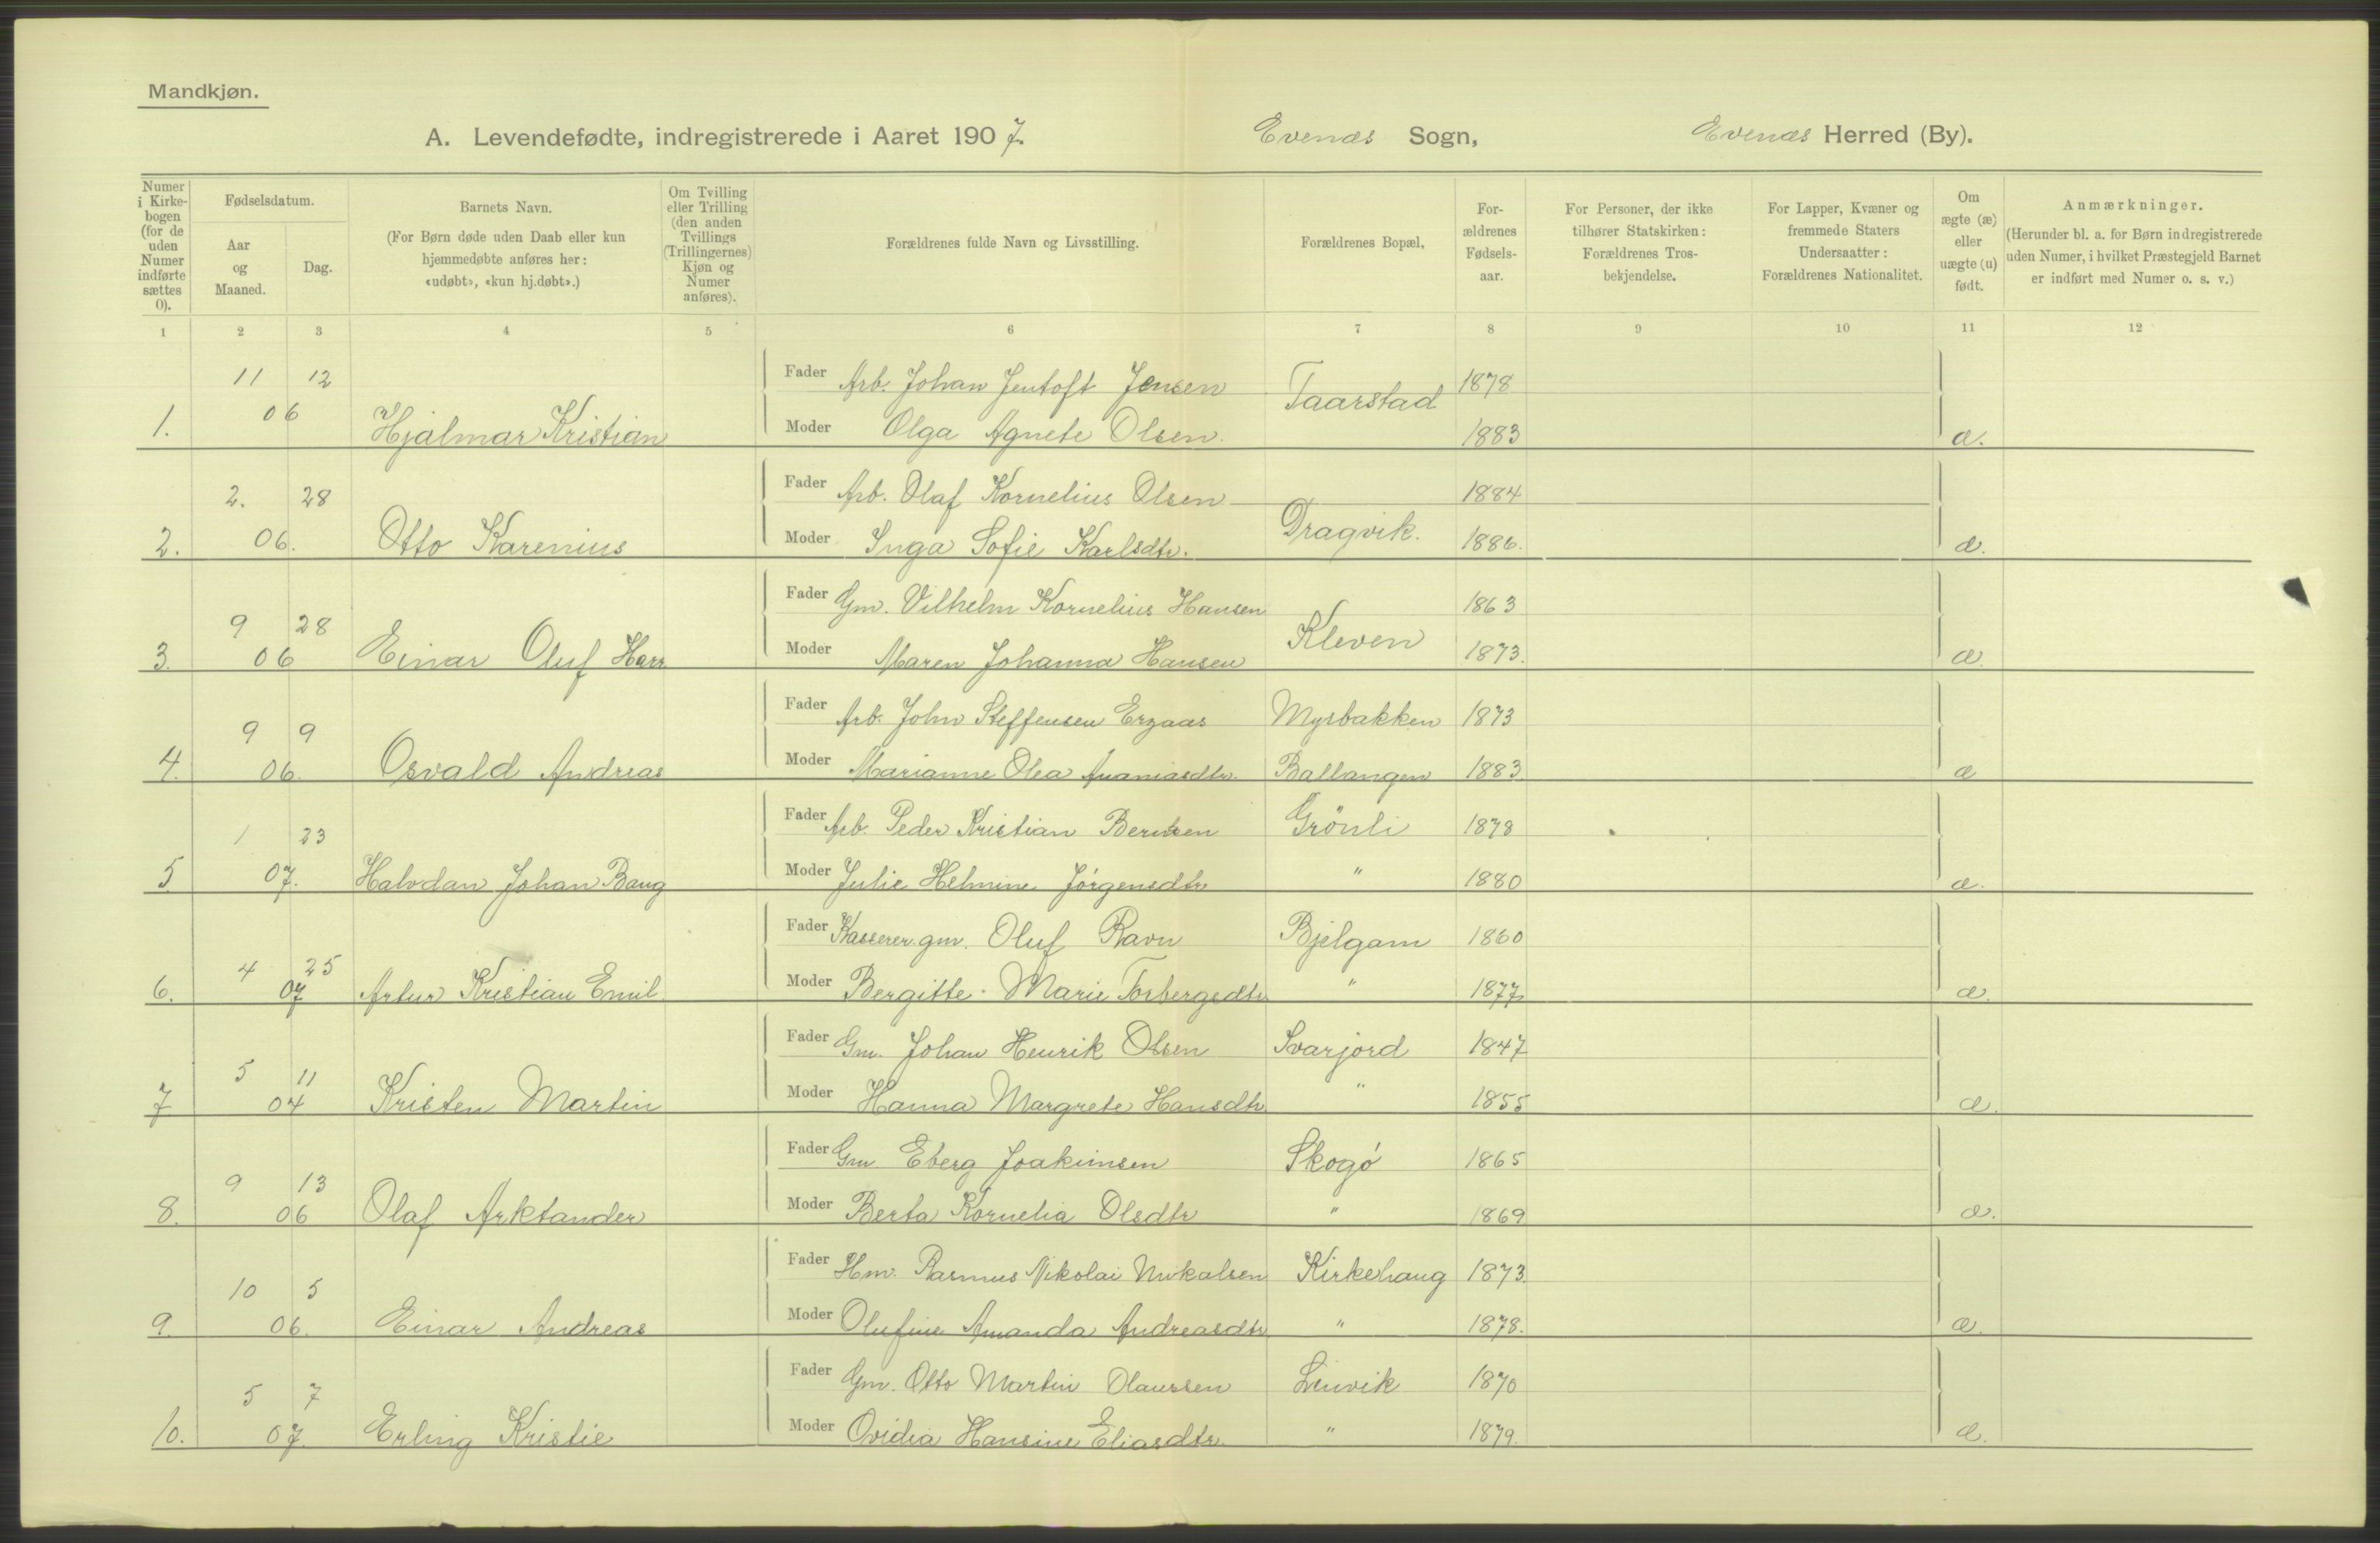 Mandkjøn.
A. Levendefødte, indregistrerede i Aaret 1907. Evenæs Sogn, Evenæs Herred (By).
Numer i Kirkebogen (for de uden Numer indførte sættes 0).
Fødselsdatum.
Aar og Maaned.
Dag.
Barnets Navn.
(For Børn døde uden Daab eller kun hjemmedøbte anføres her: «udøbt», «kun hj.døbt».)
Om Tvilling eller Trilling (den anden Tvillings (Trillingernes) Kjøn og Numer anføres).
Forældrenes fulde Navn og Livsstilling.
Forældrenes Bopæl,
For-ældrenes Fødsels-aar.
For Personer, der ikke tilhører Statskirken: Forældrenes Tros-bekjendelse.
For Lapper, Kvæner og fremmede Staters Undersaatter: Forældrenes Nationalitet.
Om ægte (æ) eller uægte (u) født.
Anmærkninger.
(Herunder bl. a. for Børn indregistrerede uden Numer, i hvilket Præstegjeld Barnet er indført med Numer o. s. v.)
1 2 3 4 5 6 7 8 9 10 11 12
11 12 Fader Arb. Johan Jentoft Jensen Taarstad 1878
1. 06 Hjalmar Kristian Moder Olga Agnete Olsen. 1883 æ.
2. 28 Fader Arb. Olaf Kornelius Olsen 1884
2. 06. Otto Karenius Moder Inga Sofie Karlsdtr. Dragvik. 1886. æ.
9 28 Fader Gm. Vilhelm Kornelius Hansen 1863
3. 06 Einar Oluf Harr Moder Maren Johanna Hansen Kleven 1873. æ.
9 9 Fader Arb. John Steffensen Erzaas Myrbakken 1873
4. 06. Osvald Andreas Moder Marianne Olea Ananiasdtr. Ballangen 1883. æ
1 23 Fader Arb. Peder Kristian Berntsen Grönli 1878
5 07. Halvdan Johan Baug Moder Julie Helmine Jörgensdtr " 1880 æ.
4 25 Fader Kasserer. gm. Oluf Ravn Bjelgam 1860
6. 07 Artur Kristian Emil Moder Bergitte Marie Torbergsdtr " 1877. æ.
5 11 Fader Gm. Johan Henrik Olsen Svarjord 1847
7 04 Kristen Martin Moder Hanna Margrete Hansdtr " 1855 æ.
9 13 Fader Gm. Eberg Joakimsen Skogö 1865
8. 06 Olaf Arktander Moder Berta Kornelia Olsdtr " 1869 æ.
10 5 Fader Hm. Rasmus Nikolai Mikalsen Kirkehaug 1873.
9. 06. Einar Andreas Moder Olufine Amanda Andreasdtr " 1878. æ.
5 7 Fader Gm. Otto Martin Olaussen Lenvik 1870
10. 07. Erling Kristie Moder Ovidia Hansine Eliasdtr. " 1879. æ.